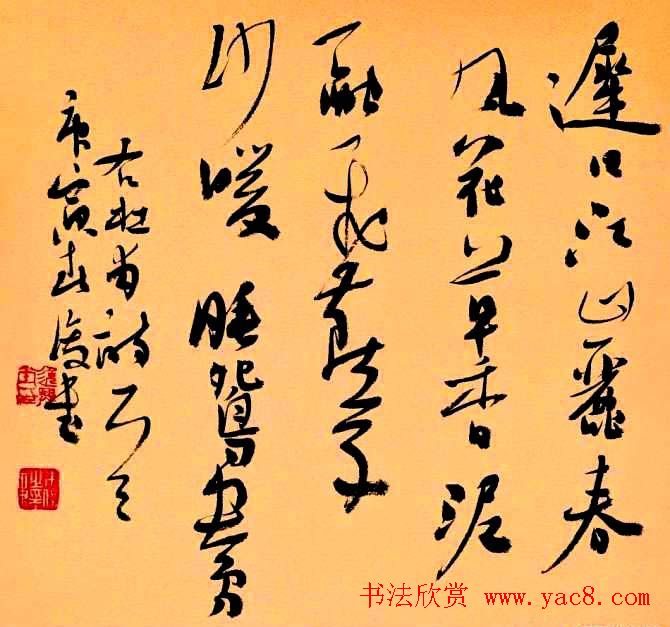 遲日江山麗春
風花草香泥
融飛燕子
沙暖睡鴛鴦
右杜甫詩一首
庚寅春俊書
书法欣赏 www.yac8.com